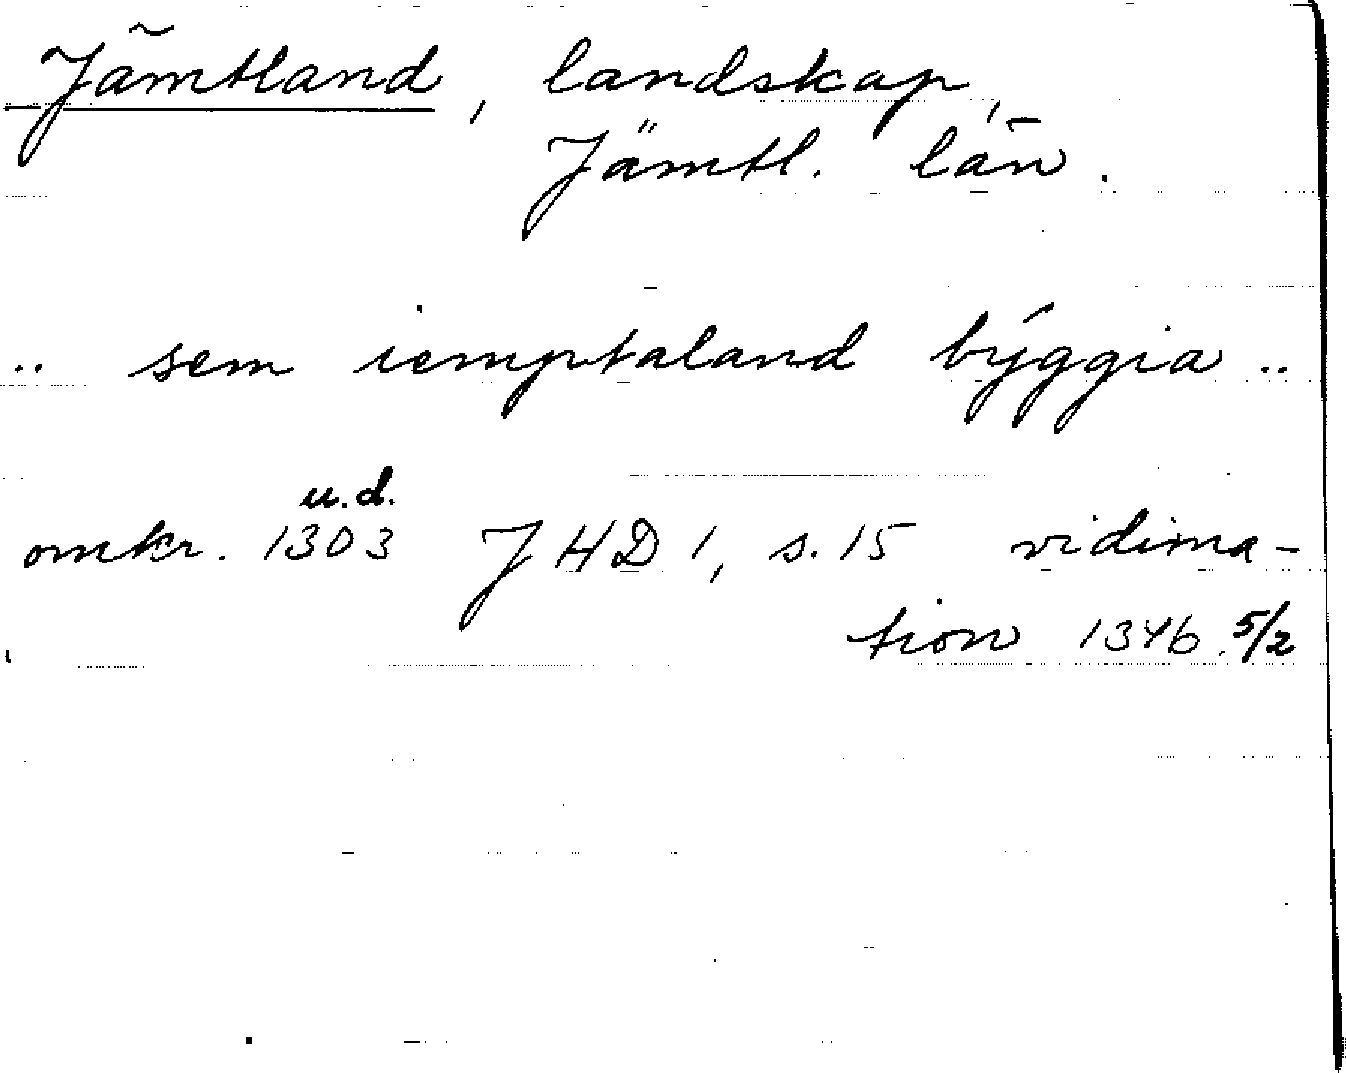 Jämtland, landskap,
Jämtl. län.
.. sem iemptaland býggia ..
u.d.
omkr. 1303 JHD 1, s. 15 vidima-
tion 1346 5/2